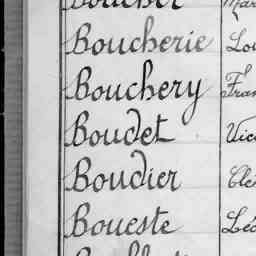 Boucher
Boucherie Lou
Bouchery Fran
Boudet Vic
Boudier Clé
Boueste Léo